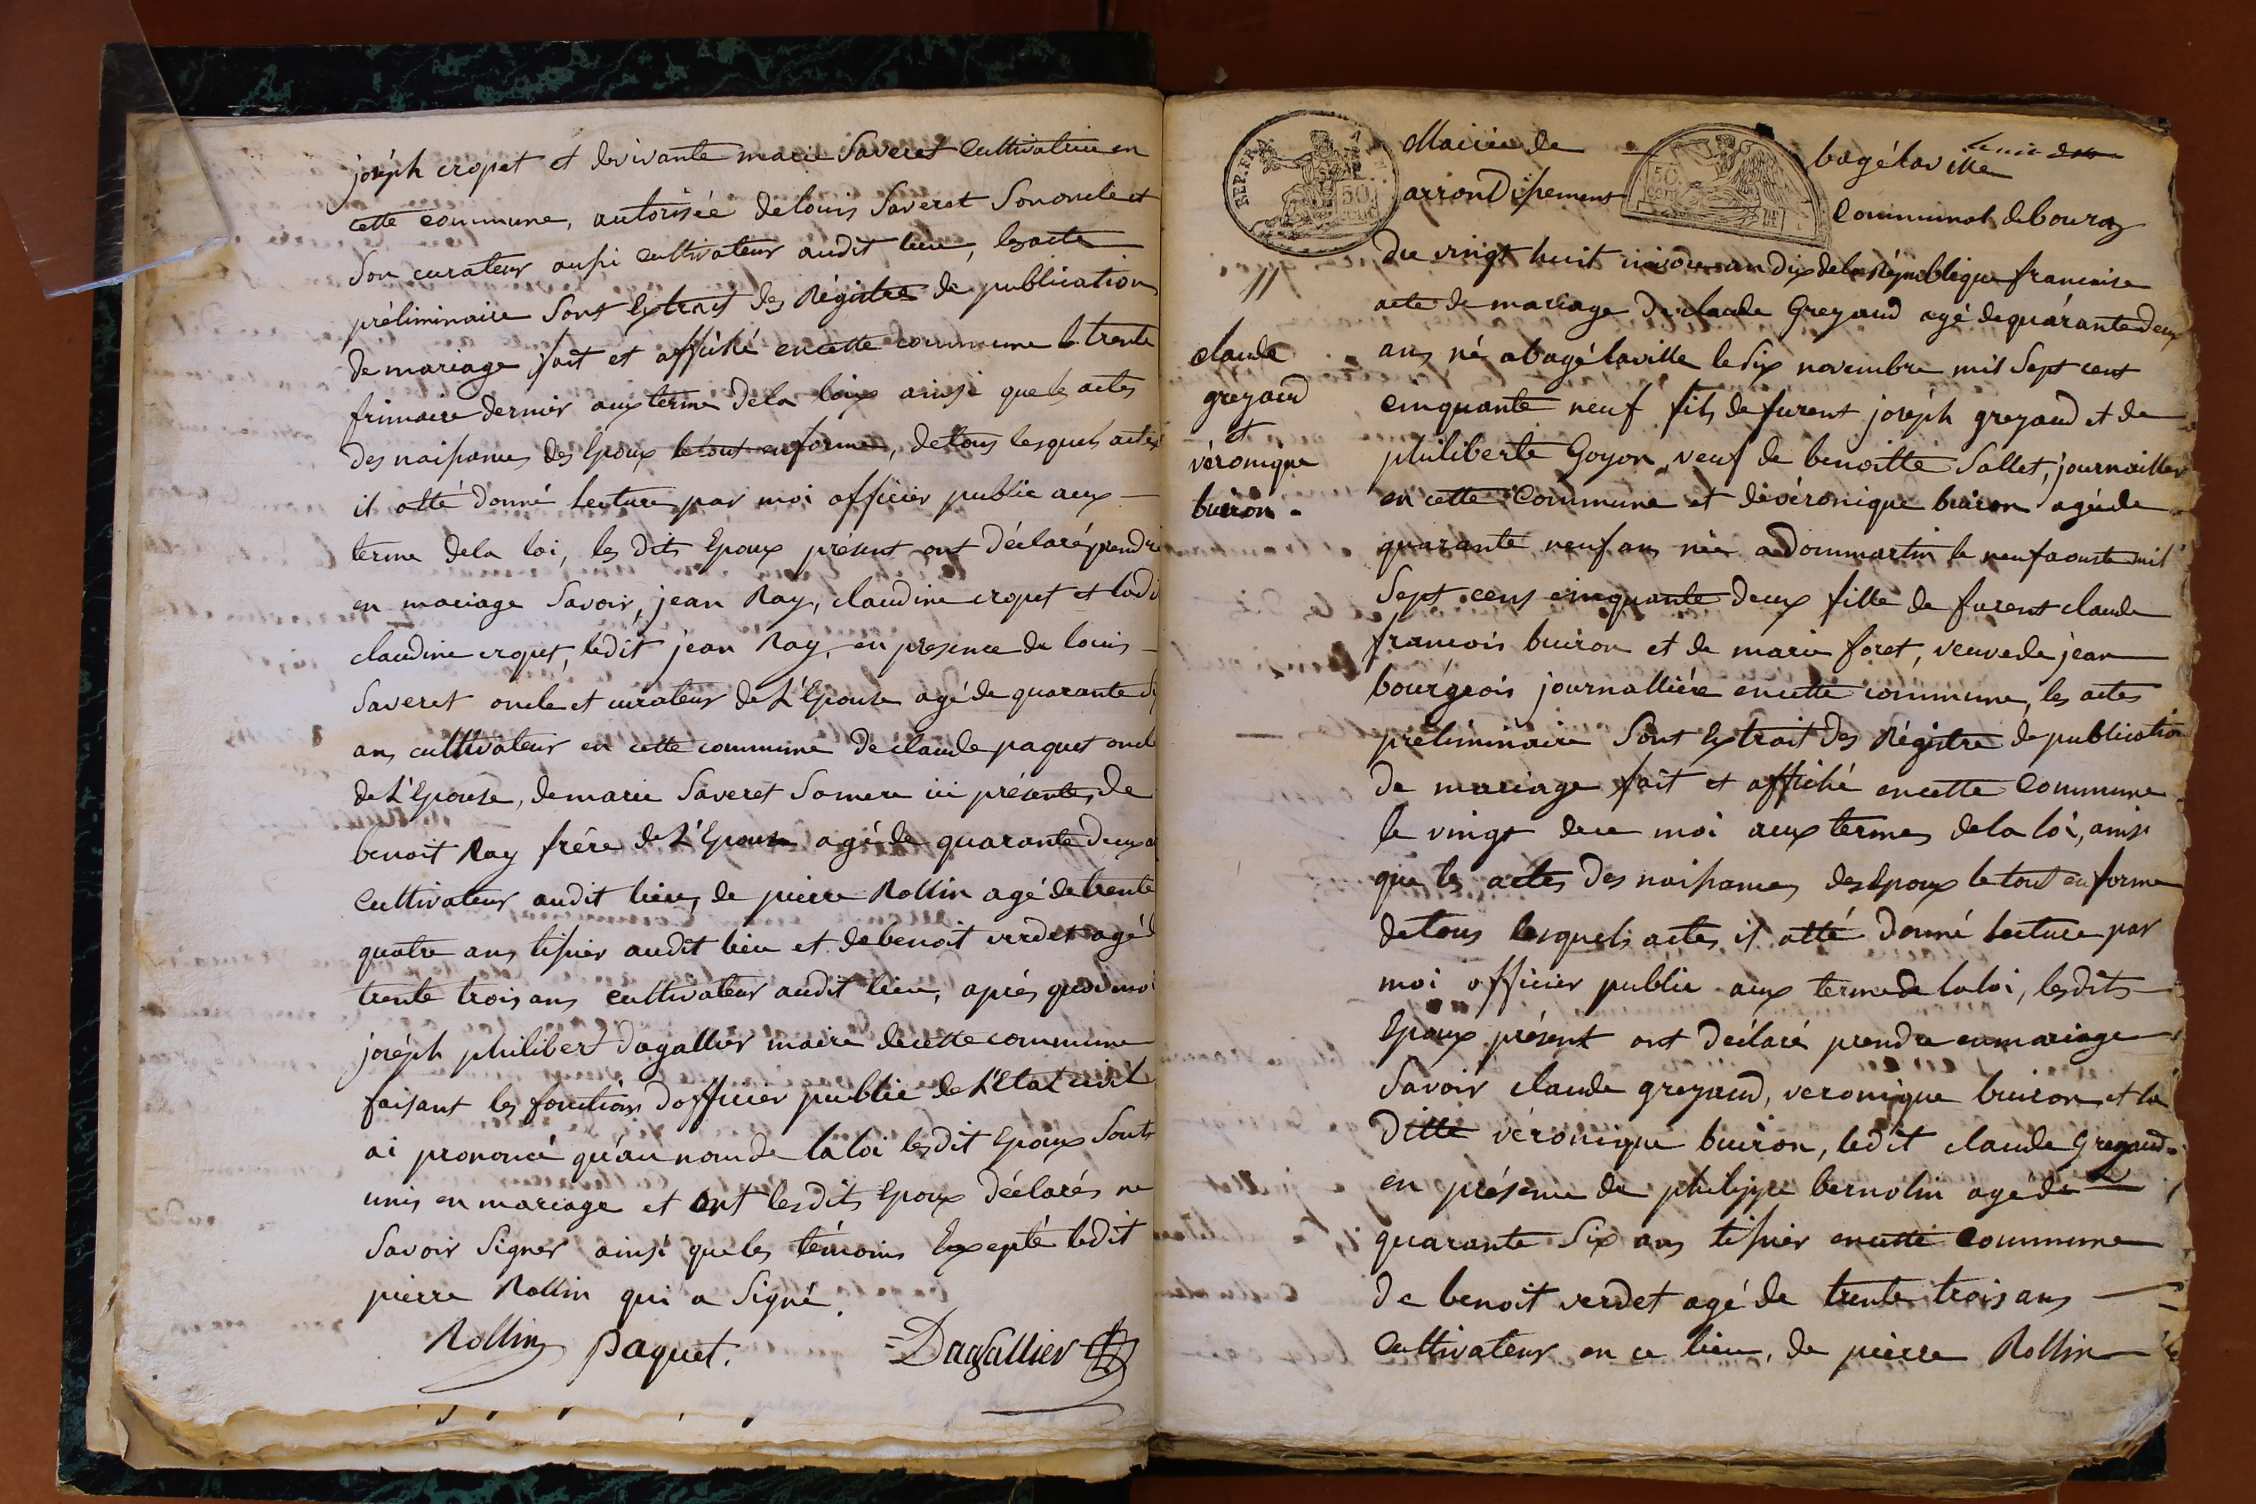 joséph cropet et devivante marie Saveret Cultivatrice en
cette commune, autorisée delouis Saveret Sononcle et
Son curateur aussi cultivateur audit lieu, lesacte
préliminaire Sont Extrait des Régistre de publication
de mariage fait et affiché encette commune le trente
frimaire dernier aux terme dela loix ainsi que les actes
des naissances des Epoux letout enforme, detous lesquels actes
il atté donné Lecture par moi officier public aux
terme dela loi, les dits Epoux présent ont déclaré prendre
en mariage Savoir, jean Ray, claudine cropet et ladi
claudine cropet, ledit jean Ray, en presence de louis
Saveret oncle et curateur de L'Epouse agé de quarante
ans cultivateur en cette commune de claude paquet oncl
de L'Epouse, demarie Saveret Samere ici présente, de
benoit Ray frére de L'Epoux agé de quarante deux a
Cultivateur audit lieu, de pierre Rollin agé de trente
quatre ans tissier audit lieu et debenoit verdet agé d
trente trois ans cultivateur audit lieu, aprés quoi moi
joséph philibert Dagallier maire decette commune
faisant les fonction dofficier public de L'Etat civil
ai prononcé qu'au nom de la loi lesdit Epoux Sont
unis en mariage et ont lesdits Epoux déclarés ne
Savoir Signer ainsi queles témoins Excepté ledit
pierre Rollin qui a Signé.
Rollin paquet. Dagallier
REP. FRA.
50
CENT
50
CENT
Mairie de bagélaville
arrondissement Communal debourg
du vingt huit nivose an dix dela République francaise
claude
greyaud
et
véronique
buiron
acte de mariage de claude Greyaud agé dequárante deux
ans né abagélaville le Six novembre mil Sept cent
cinquante neuf fils defurent joséph greyaud et de
philiberte Goyon, veuf de benoitte Sallet, journaillier
en cette Commune et devéronique buiron agéede
quarante neuf ans née adommartin le neuf aouste mil
Sept cens cinquante deux fille de furent claude
francois buiron et de marie foret, veuvede jean
bourgeois journalliére encette commune, les actes
préliminaire Sont Extrait des Régistre de publication
de mariage fait et affiché encette Commune
le vingt dece moi aux termes dela loi, ainsi
que les actes des naissances des Epoux letout en forme
detous lesquels actes il atté donné lecture par
moi officier public aux termede laloi, lesdits
Epoux présent ont déclaré prendre enmariage
Savoir claude greyaud, veronique buiron, et la
ditte véronique buiron, ledit claude Greyaud
en présence de philippe bernolin agé de
quarante Six ans tissier encette commune
de benoit verdet agé de trente trois ans
Cultivateur en ce lieu, de pierre Rollin